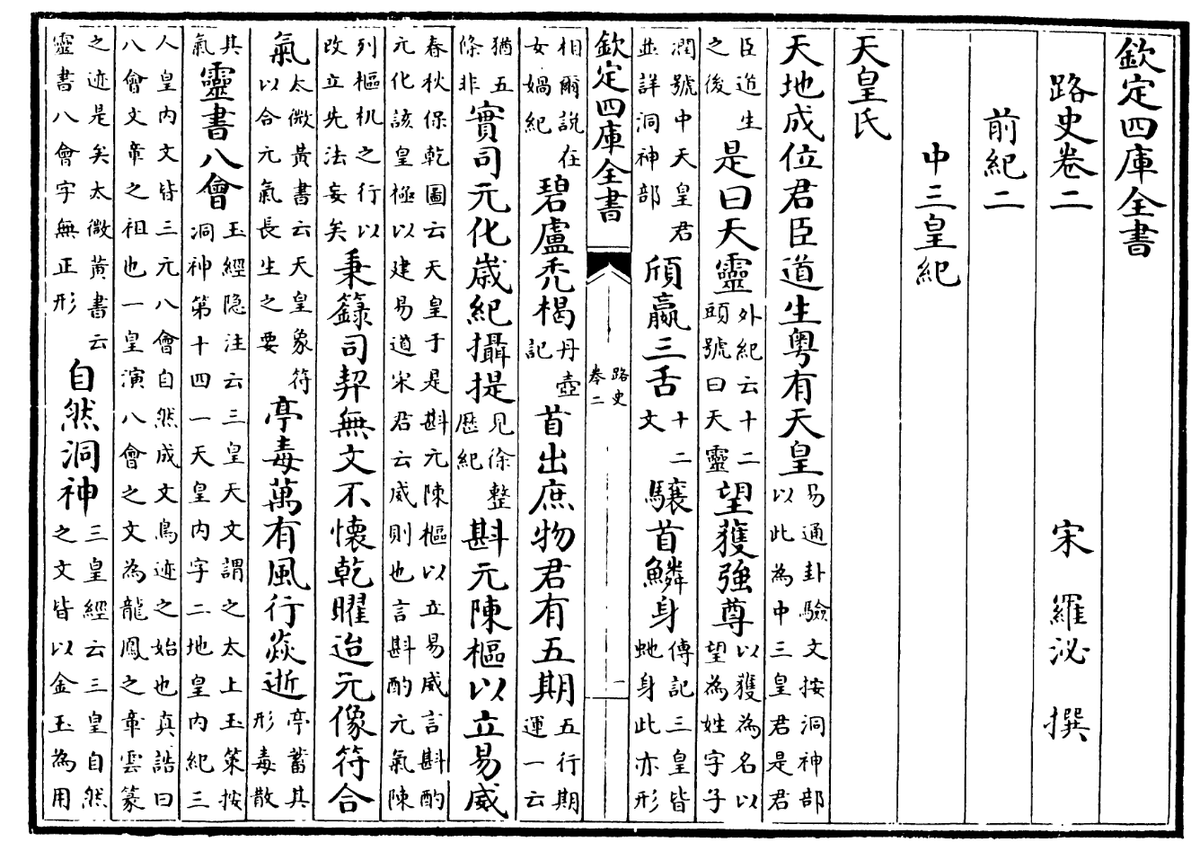 欽定四庫全書
路史卷二 宋 羅泌 撰
前紀二
中三皇紀
天皇氏
天地成位君臣道生粵有天皇易通卦驗文按洞神部以此為中三皇君是君
臣道生之後是曰天靈外紀云十二頭號曰天靈望獲強尊以獲為名以望為姓字子
潤號中天皇君並詳洞神部頎羸三舌十二文驤首鱗身傳記三皇皆虵身此亦形
欽定四庫全書 路史卷二 一
相爾說在女媧紀碧盧禿楬丹壺記首出庶物君有五期五行期運一云
猶五條非實司元化嵗紀攝提見徐整歴紀斟元陳樞以立易威
春秋保乾圖云天皇于是斟元陳樞以立易威言斟酌元化該皇極以建易道宋君云威則也言斟酌元氣陳
列樞机之行以改立先法妄矣秉籙司契無文不懷乾曜迨元像符合
氣太微黃書云天皇象符以合元氣長生之要亭毒萬有風行焱逝亭蓄其形毒散
其氣靈書八會玉經隐注云三皇天文謂之太上玉策按洞神第十四一天皇内字二地皇内紀三
人皇内文皆三元八會自然成文鳥迹之始也真誥曰八會文章之祖也一皇演八會之文為龍鳳之章雲篆
之迹是矣太微黃書云靈書八會字無正形自然洞神三皇經云三皇自然之文皆以金玉為用